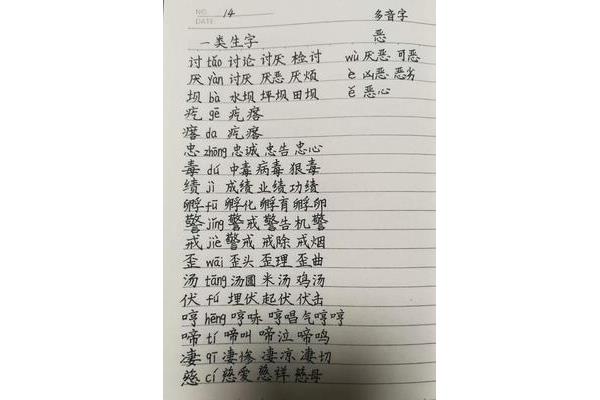 NO. 14
DATE
一类生字
讨 tǎo 讨论 讨厌 检讨
厌 yàn 讨厌 厌恶 厌烦
坝 bà 水坝 坪坝 田坝
疙 gē 疙瘩
瘩 da 疙瘩
忠 zhōng 忠诚 忠告 忠心
毒 dú 中毒 病毒 狠毒
绩 jì 成绩 业绩 功绩
孵 fū 孵化 孵育 孵卵
警 jǐng 警戒 警告 机警
戒 jiè 警戒 戒除 戒烟
歪 wāi 歪头 歪理 歪曲
汤 tāng 汤圆 米汤 鸡汤
伏 fú 埋伏 起伏 伏击
哼 hēng 哼唱 气哼哼
啼 tí 啼叫 啼泣 啼鸣
凄 qī 凄惨 凄凉 凄切
慈 cí 慈爱 慈祥 慈母
多音字
恶
wù 厌恶 可恶
è 凶恶 恶劣
ě 恶心